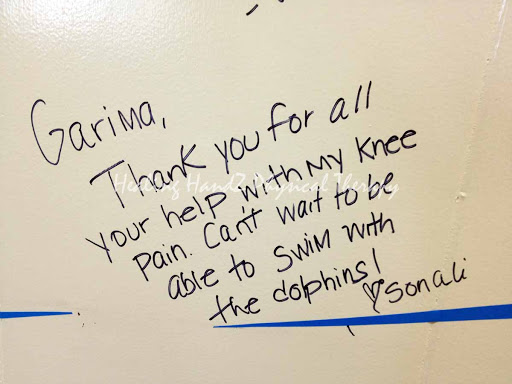 Garima,
Thank you for all
your help with my knee
pain. Can't wait to be
able to swim with
the dolphins!
♡Sonali
Healing HandZ Physical Therapy